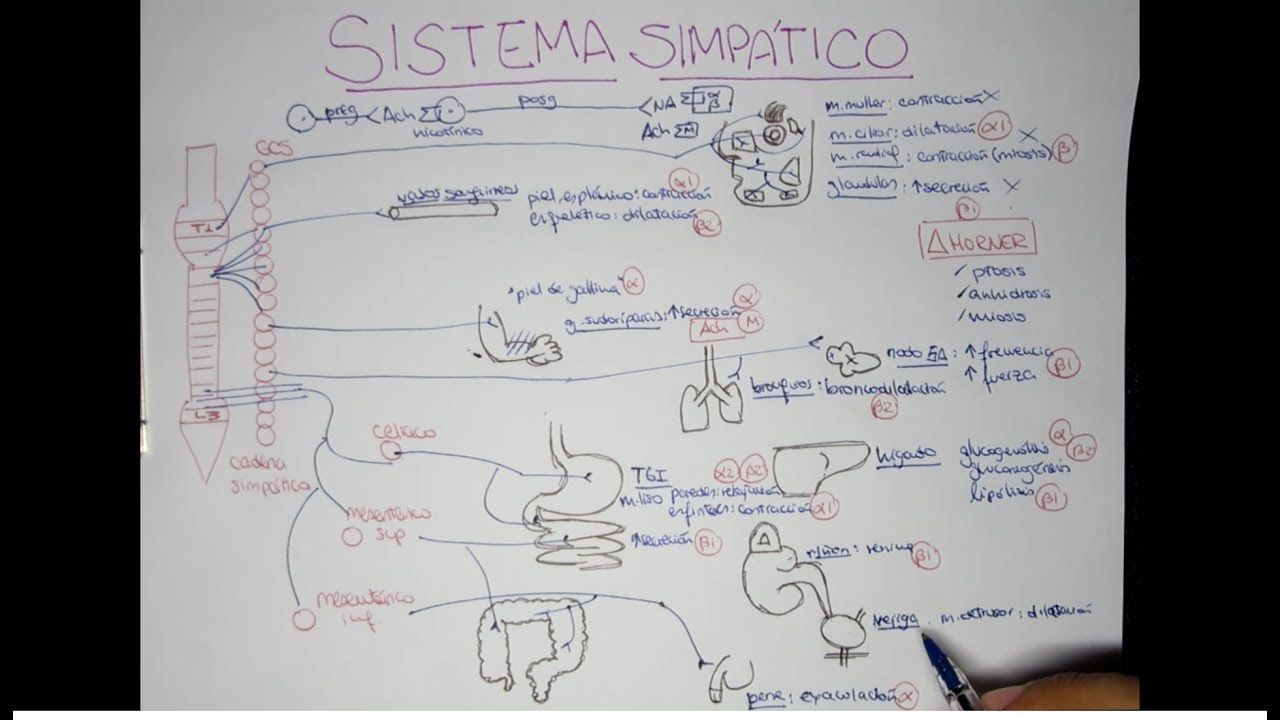 SISTEMA SIMPÁTICO
preg Ach posg NA α β
nicotínico Ach M
GCS
m. muller: contracción X
m. ciliar: dilatación α1 X
m. radial: contracción (miosis) β
glandulas: ↑ secreción X
β1
vasos sanguineos piel, esplácnico: contracción α1
esquelético: dilatación β2
T1
Δ HORNER
✓ ptosis
✓ anhidrosis
✓ miosis
"piel de gallina" α
g. sudoríparas: ↑ secreción α
Ach M
nodo SA: ↑ frecuencia
↑ fuerza β1
bronquios: broncodilatación
β2
L3
cadena simpática
celiaco
TGI α2 β2
m. liso paredes: relajación
esfínteres: contracción α1
↑ secreción β1
hígado glucogenolisis α β2
lipólisis β1
mesentérico sup
riñon: renina β1
mesentérico inf.
vejiga. m. detrusor: dilatación
pene: eyaculación α